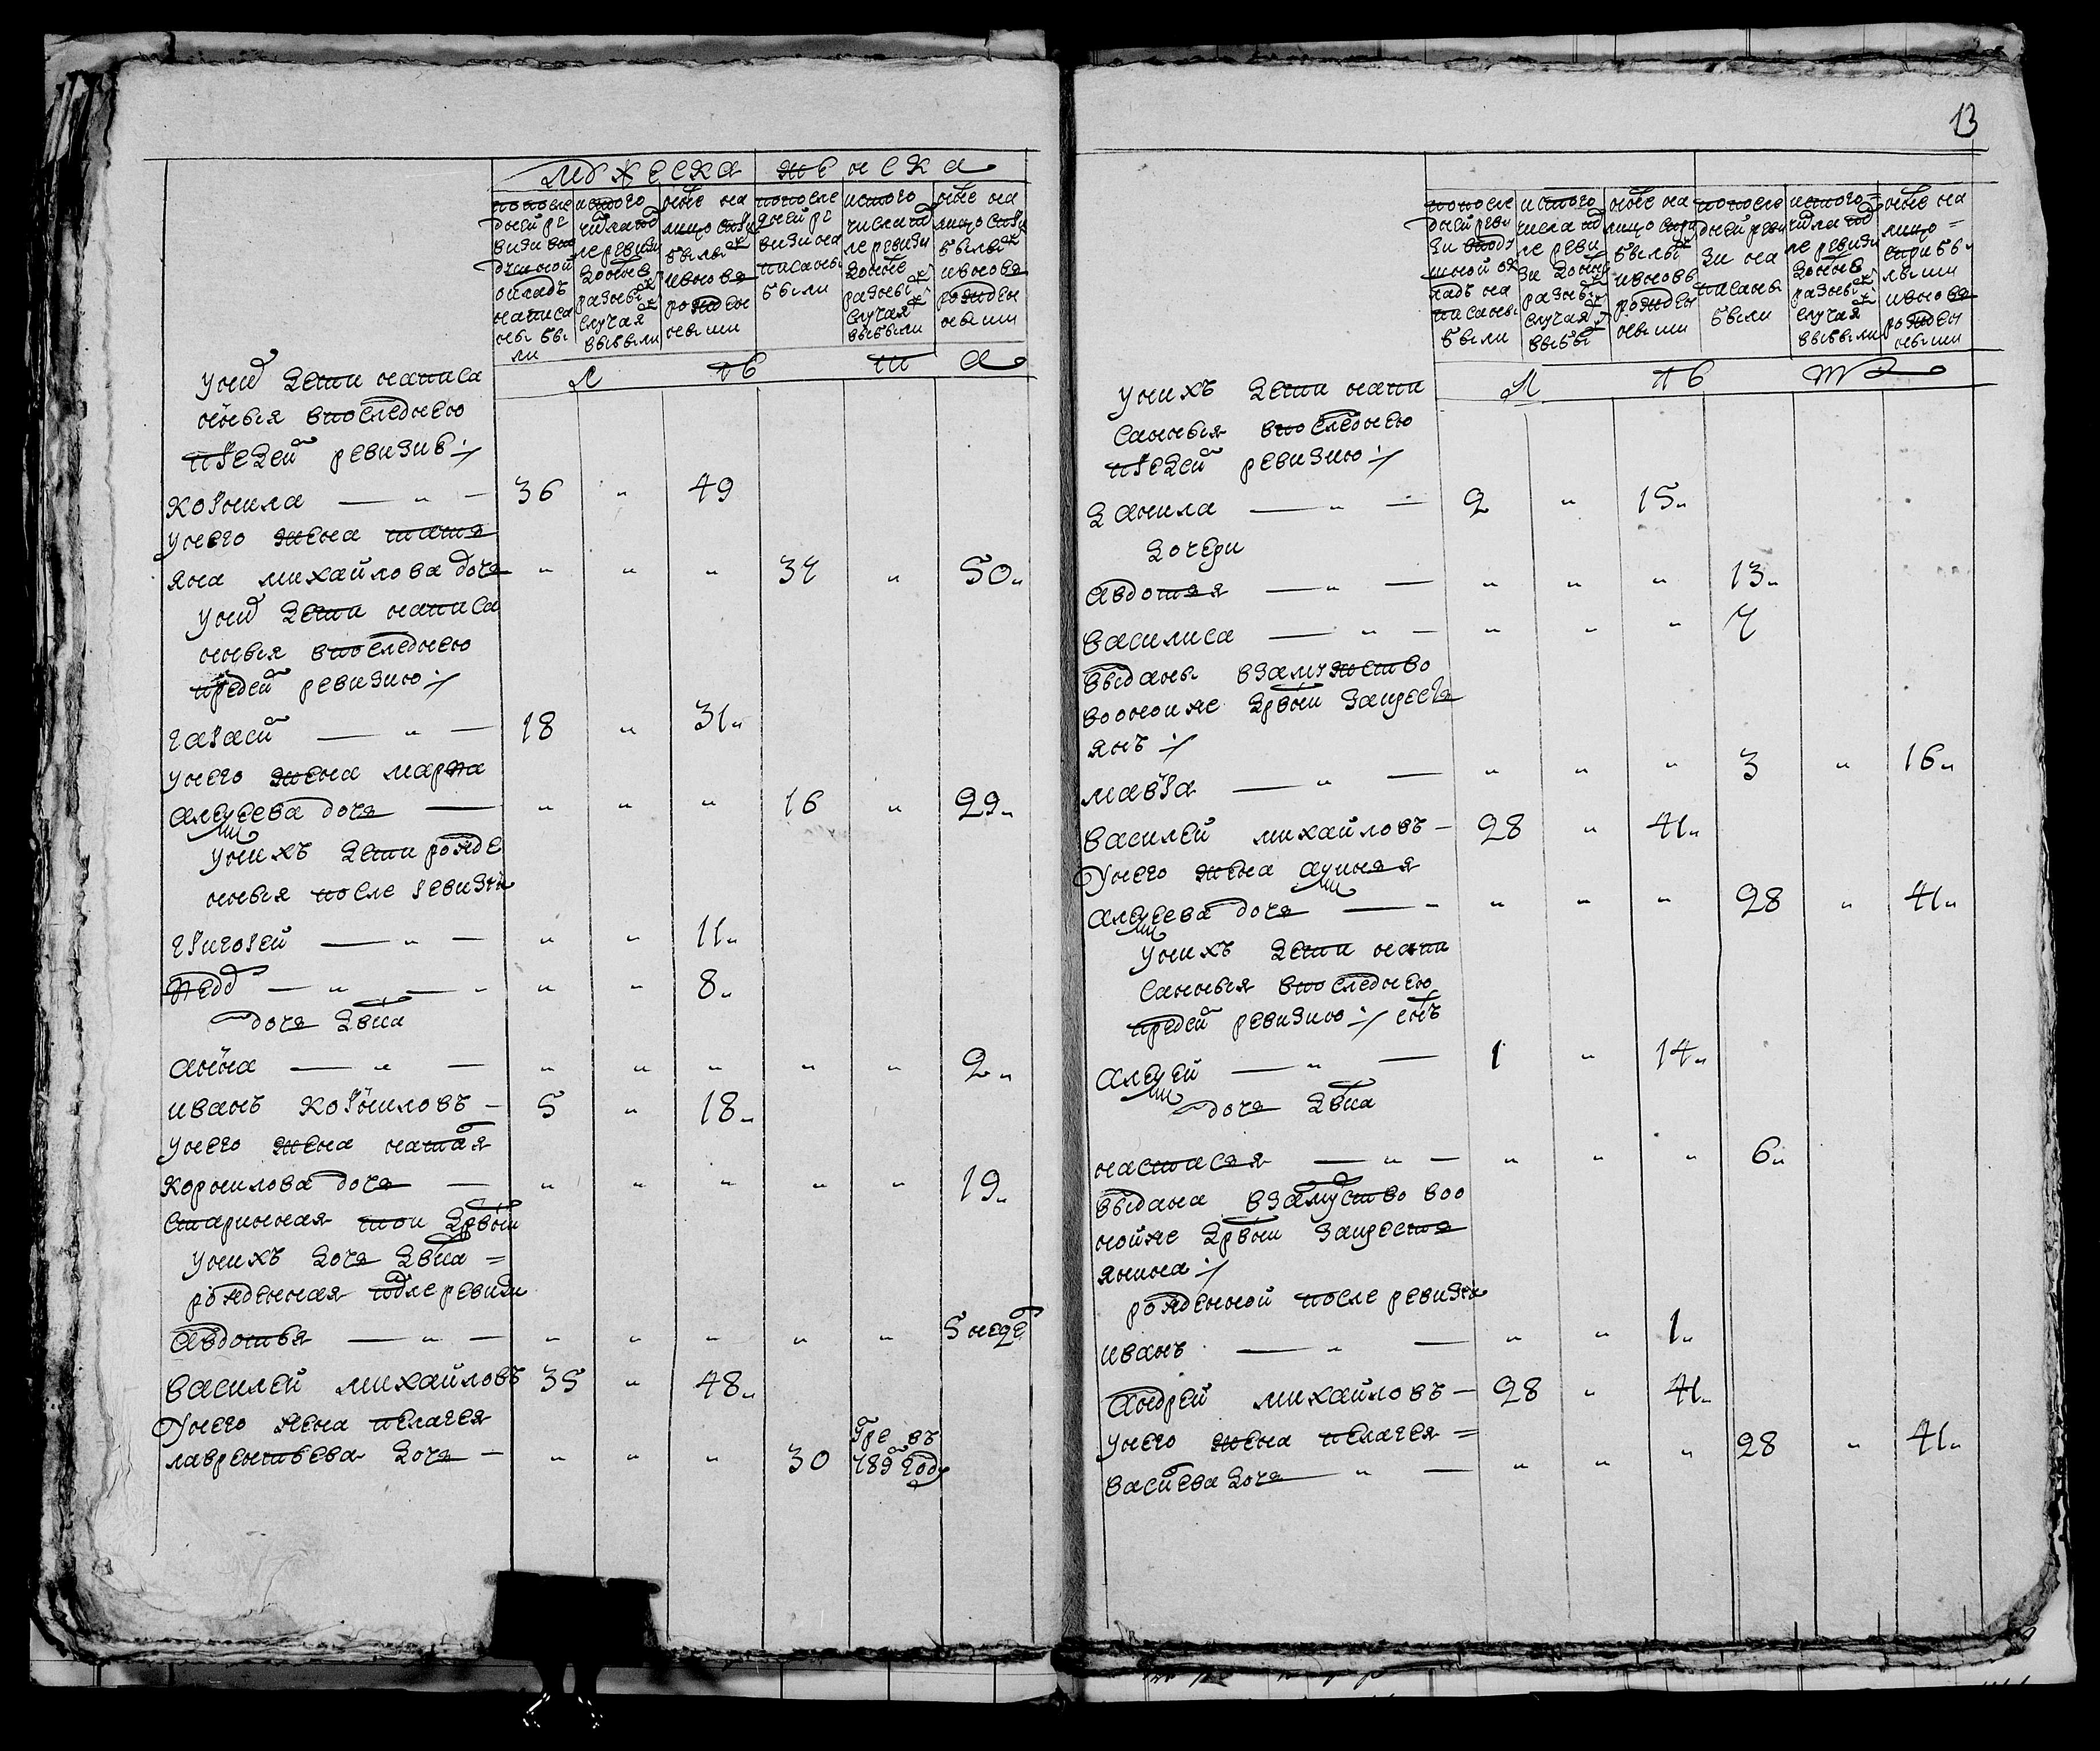 13
мужеска женска
по после
дней ре
визи в по
душной
окладъ
написа
ны бы
ли
ис того
числа по
ле ревизи
зоные
разны
случая
выбыли
ныне на
лицо сспр
былы
и вновь
рожден
ными
по после
дней ре
визи на
писаны
были
ис того
числа по
ле ревизи
зоные
разны
случая
выбыли
ныне на
лицо
былы
и вновь
рожден
ными
л ѣ т а
у них дети написа
нныя в последнею
пред сей ревизиѣ
корнила — " — 36 " 49
у него жена татя
яна михайлова дочь " " " 37 " 50
у них дети написа
нныя в последнею
пред сей ревизию
гарасей — " — 18 " 31
у него жена марфа
алексеева дочь — " " " 16 " 29
у нихъ дети рожде
нныя после ревизи
григорей — " — " " 11
федо — " — " " 8
дочь девка
анна — " — " " " " " 2
иванъ корниловъ — 5 " 18
у него жена наталя
корнилова дочь — " " " " " 19
старинная той дрвни
у нихъ дочь девка
рожденная после ревизи
авдотья — " — " " " " " 5 недѣ
василей михайловъ 35 " 48
у него жена пелагея
лаврентьева дочь — " " " 30 умре въ
789 году
по после
дней реви
зи в поду
шной ок
ладъ на
писаны
были
ис того
числа по
ле реви
зи зоные
разны
случая
выбы
ныне на
лицо
былы
и вновь
рожден
ными
по после
дней реви
зи на
писаны
были
ис того
числа по
ле ревизи
зоные
разны
случая
выбыли
ныне на
лицо
бы
лыми
и вновь
рожден
ными
л ѣ т
у нихъ дети напи
санныя в последнею
пред сей ревизию
данила — " — 2 " 15
дочери
авдотяя — " — " " " 13
василиса — " — " " " 7
выданы в замужство
во оной же дрвни за кресть
янъ
мавра — " — " " " 3 " 16
василей михайловъ — 28 " 41
у него жена аксиняя
алексеева дочь — " " " " 28 " 41
у нихъ дети напи
санныя в последнею
пред сей ревизию сынъ
алексей — " — 1 " 14
дочь девка
настасяя — " — " " " 6
выдана в замуство во о
ной же дрвни за крестья
янина
рожденной после ревизи
иванъ — " — " " 1
андрей михайловъ — 28 " 41
у него жена пелагея
василева дочь — " — " " " 28 " 41